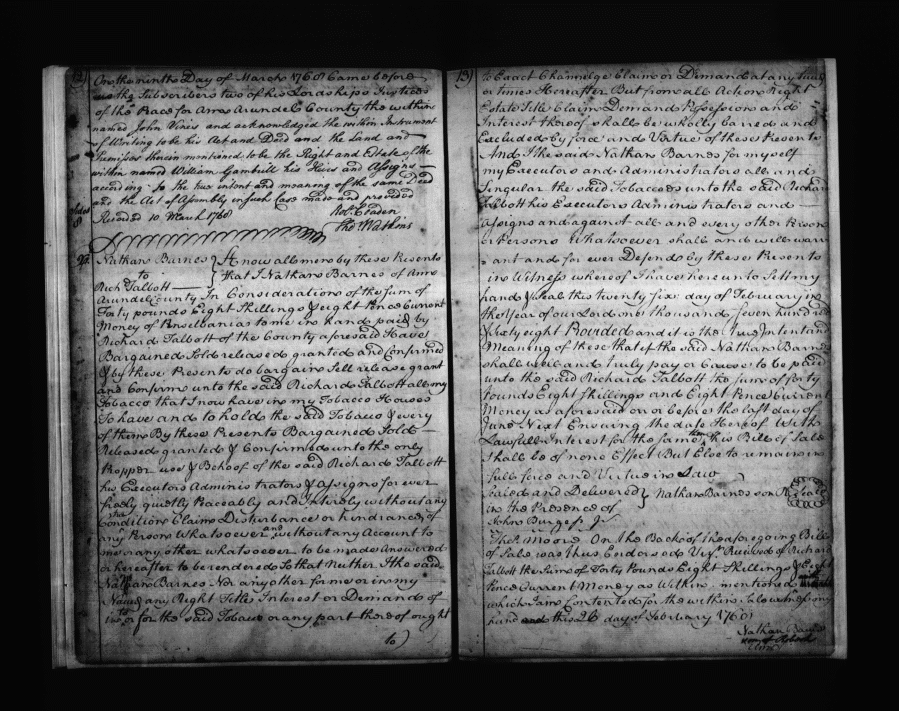 12)
On the ninth Day of March 1768 Came before
us the Subscribers two of his Lordships Justices
of the Peace for Ann Arundel County the within
named John Vines and acknowledged the within Instrument
of Writing to be his Act and Deed and the Land and
Premisses therein mentioned to be the Right and Estate of the
within named William Gambull his Heirs and Assigns
according to the true intent and meaning of the same Deed
and the Act of Assembly in such Case made and provided
Recorded 10 March 1768
Thos Watkins
Nathan Barnes
to
Rich Talbott
Know all men by these Presents
that I Nathan Barnes of Ann
Arundel County In Consideration of the Sum of
Forty pounds Eight Shillings & Eight Pence Current
Money of Pensilvania to me in hand paid by
Richard Talbott of the County aforesaid Have
Bargained Sold released granted and Confirmed
& by these Presents do bargain Sell release grant
and Confirm unto the said Richard Talbott all my
Tobacco that I now have in my Tobacco Houses
To have and to hold the said Tobacco & every
of them By these Presents Bargained Sold
Released granted & Confirmed unto the only
propper use & Behoof of the said Richard Talbott
his Executors Administrators & assigns for ever
freely quietly Peaceably and Intirely without any
Condition Claim Disturbance or hindrance of
any Person Whatsoever and without any Account to
me or any other whatsoever to be made Answered
or hereafter to be rendered So that Neither I the said
Nathan Barnes Nor any other for me or in my
Name any Right Title Interest or Demand of
in to or for the said Tobacco or any part thereof ought
to)
13)
to Exact Challenge Claim or Demand at any time
or times Hereafter But from all Action Right
Estate Title Claim Demand Possession and
Interest thereof shall be wholly barred and
Excluded by force and Vertue of these Presents
And I the said Nathan Barnes for myself
my Executors and Administrators all and
Singular the said Tobaccoes unto the said Richard
Talbott his Executors Administrators and
Assigns and against all and every other Person
or Persons Whatsoever shall and will warr
ant and for ever Defend by these Presents
in Witness whereof I have here unto Sett my
hand & Seal this twenty six day of February in
the Year of our Lord one thousand Seven hundred
& Sixty eight Provided and it is the true Intent and
Meaning of these that if the said Nathan Barnes
shall well and truly pay or Cause to be paid
unto the said Richard Talbott the sum of forty
Pounds Eight Shillings and Eight Pence Current
Money as aforesaid on or before the last day of
June Next Ensuing the date Here of With
Lawfull Interest for the same then this Bill of Sale
Shall be of none Effect But Else to remain in
full force and Virtue in Law
Sealed and Delivered
in the Presence of
John Burgess Jr
Nathan Barnes son R Seal
On the Back of the aforegoing Bill
of Sale was thus Endorsed Vizt Received of Richard
Talbott the Sum of Forty Pounds Eight Shillings & Eight
Pence Current Money as Within mentioned
which I am Contented for the within Sale witness my
hand this 26 day of February 1768
Nathan Barnes